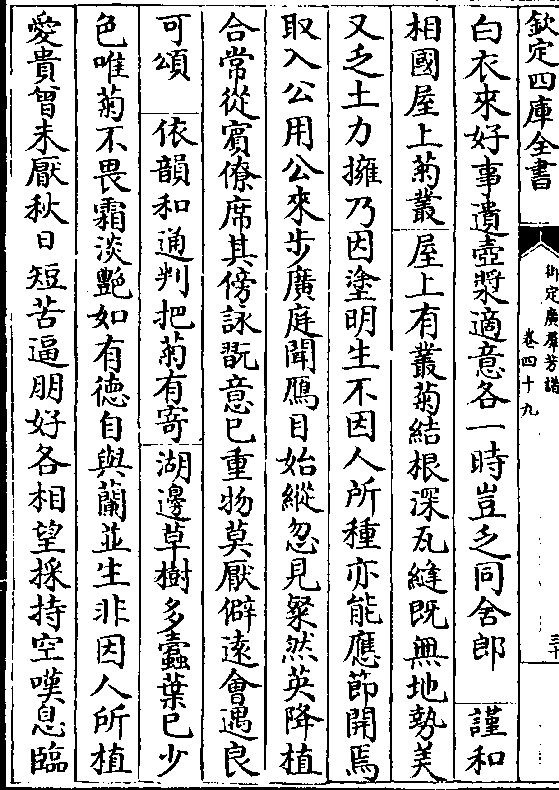 欽定四庫全書
御定廣羣芳譜
卷四十九
三十
白衣來好事遺壺漿適意各一時豈乏同舍郎　謹和
相國屋上菊叢　屋上有叢菊結根深瓦縫既無地勢美
又乏土力擁乃因塗明生不因人所種亦能應節開焉
取入公用公來步廣庭聞鴈目始縱忽見粲然英降植
合常從賓僚席其傍詠翫意已重物莫厭僻遠會遇良
可頌　依韻和通判把菊有寄　湖邊草樹多蠹葉已少
色唯菊不畏霜淡艷如有德自與蘭並生非因人所植
愛貴曾未厭秋日短苦逼朋好各相望採持空嘆息臨